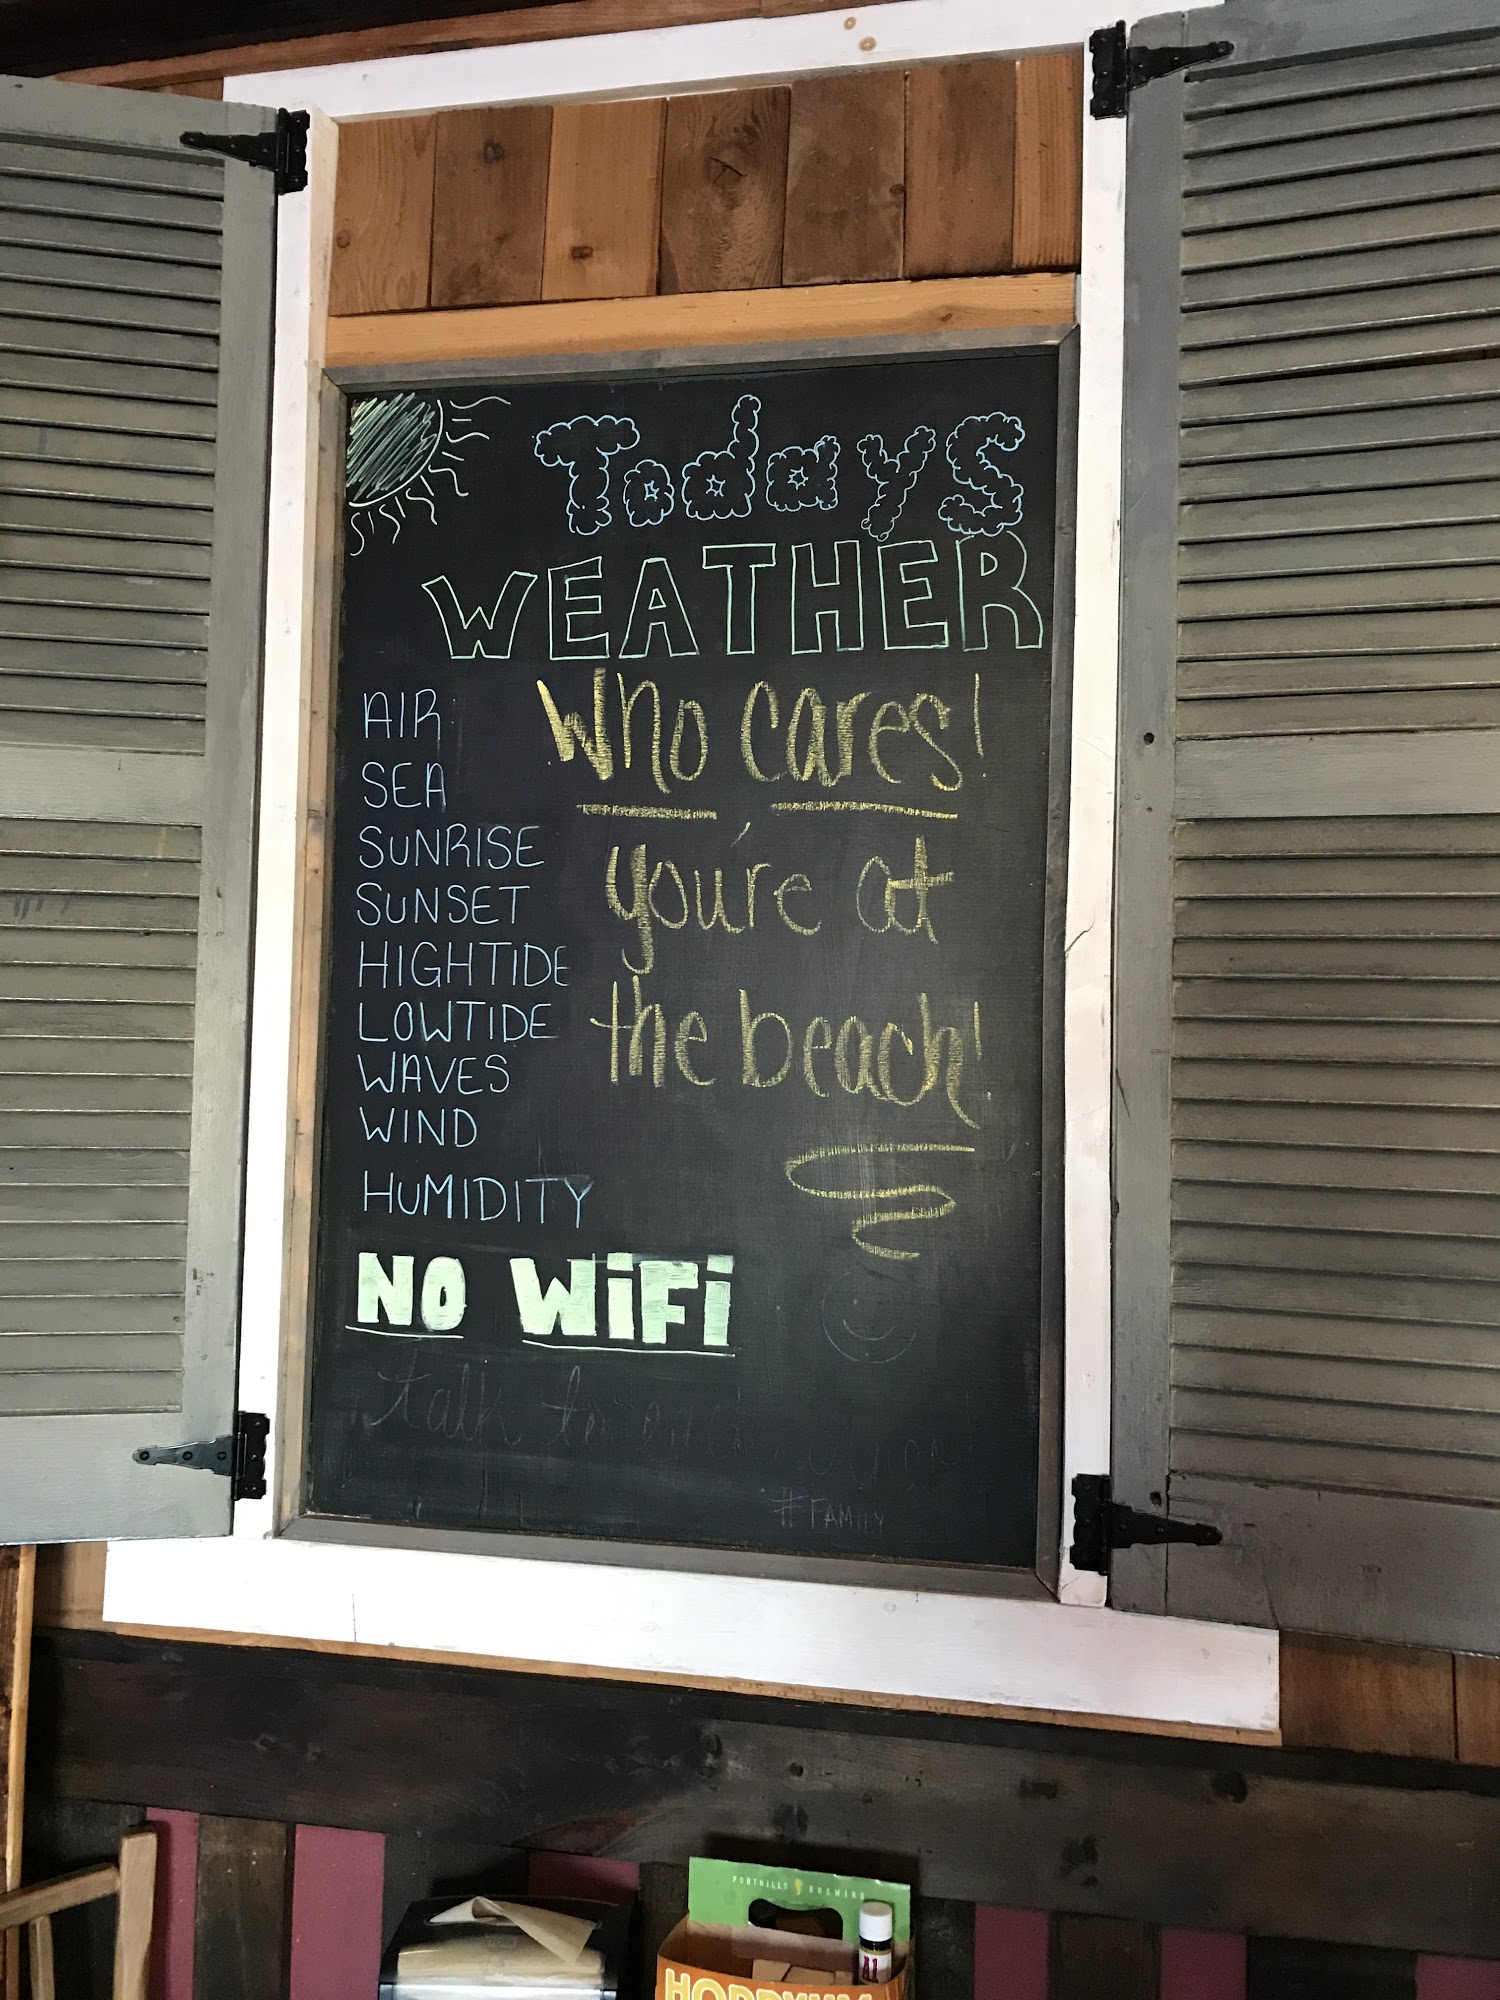 Todays
WEATHER
AIR
SEA
SUNRISE
SUNSET
HIGHTIDE
LOWTIDE
WAVES
WIND
HUMIDITY
Who cares!
you're at
the beach!
NO WiFi
talk to
#FAMILY
FOOTHILLS BREWING
A1
HOPPYUM